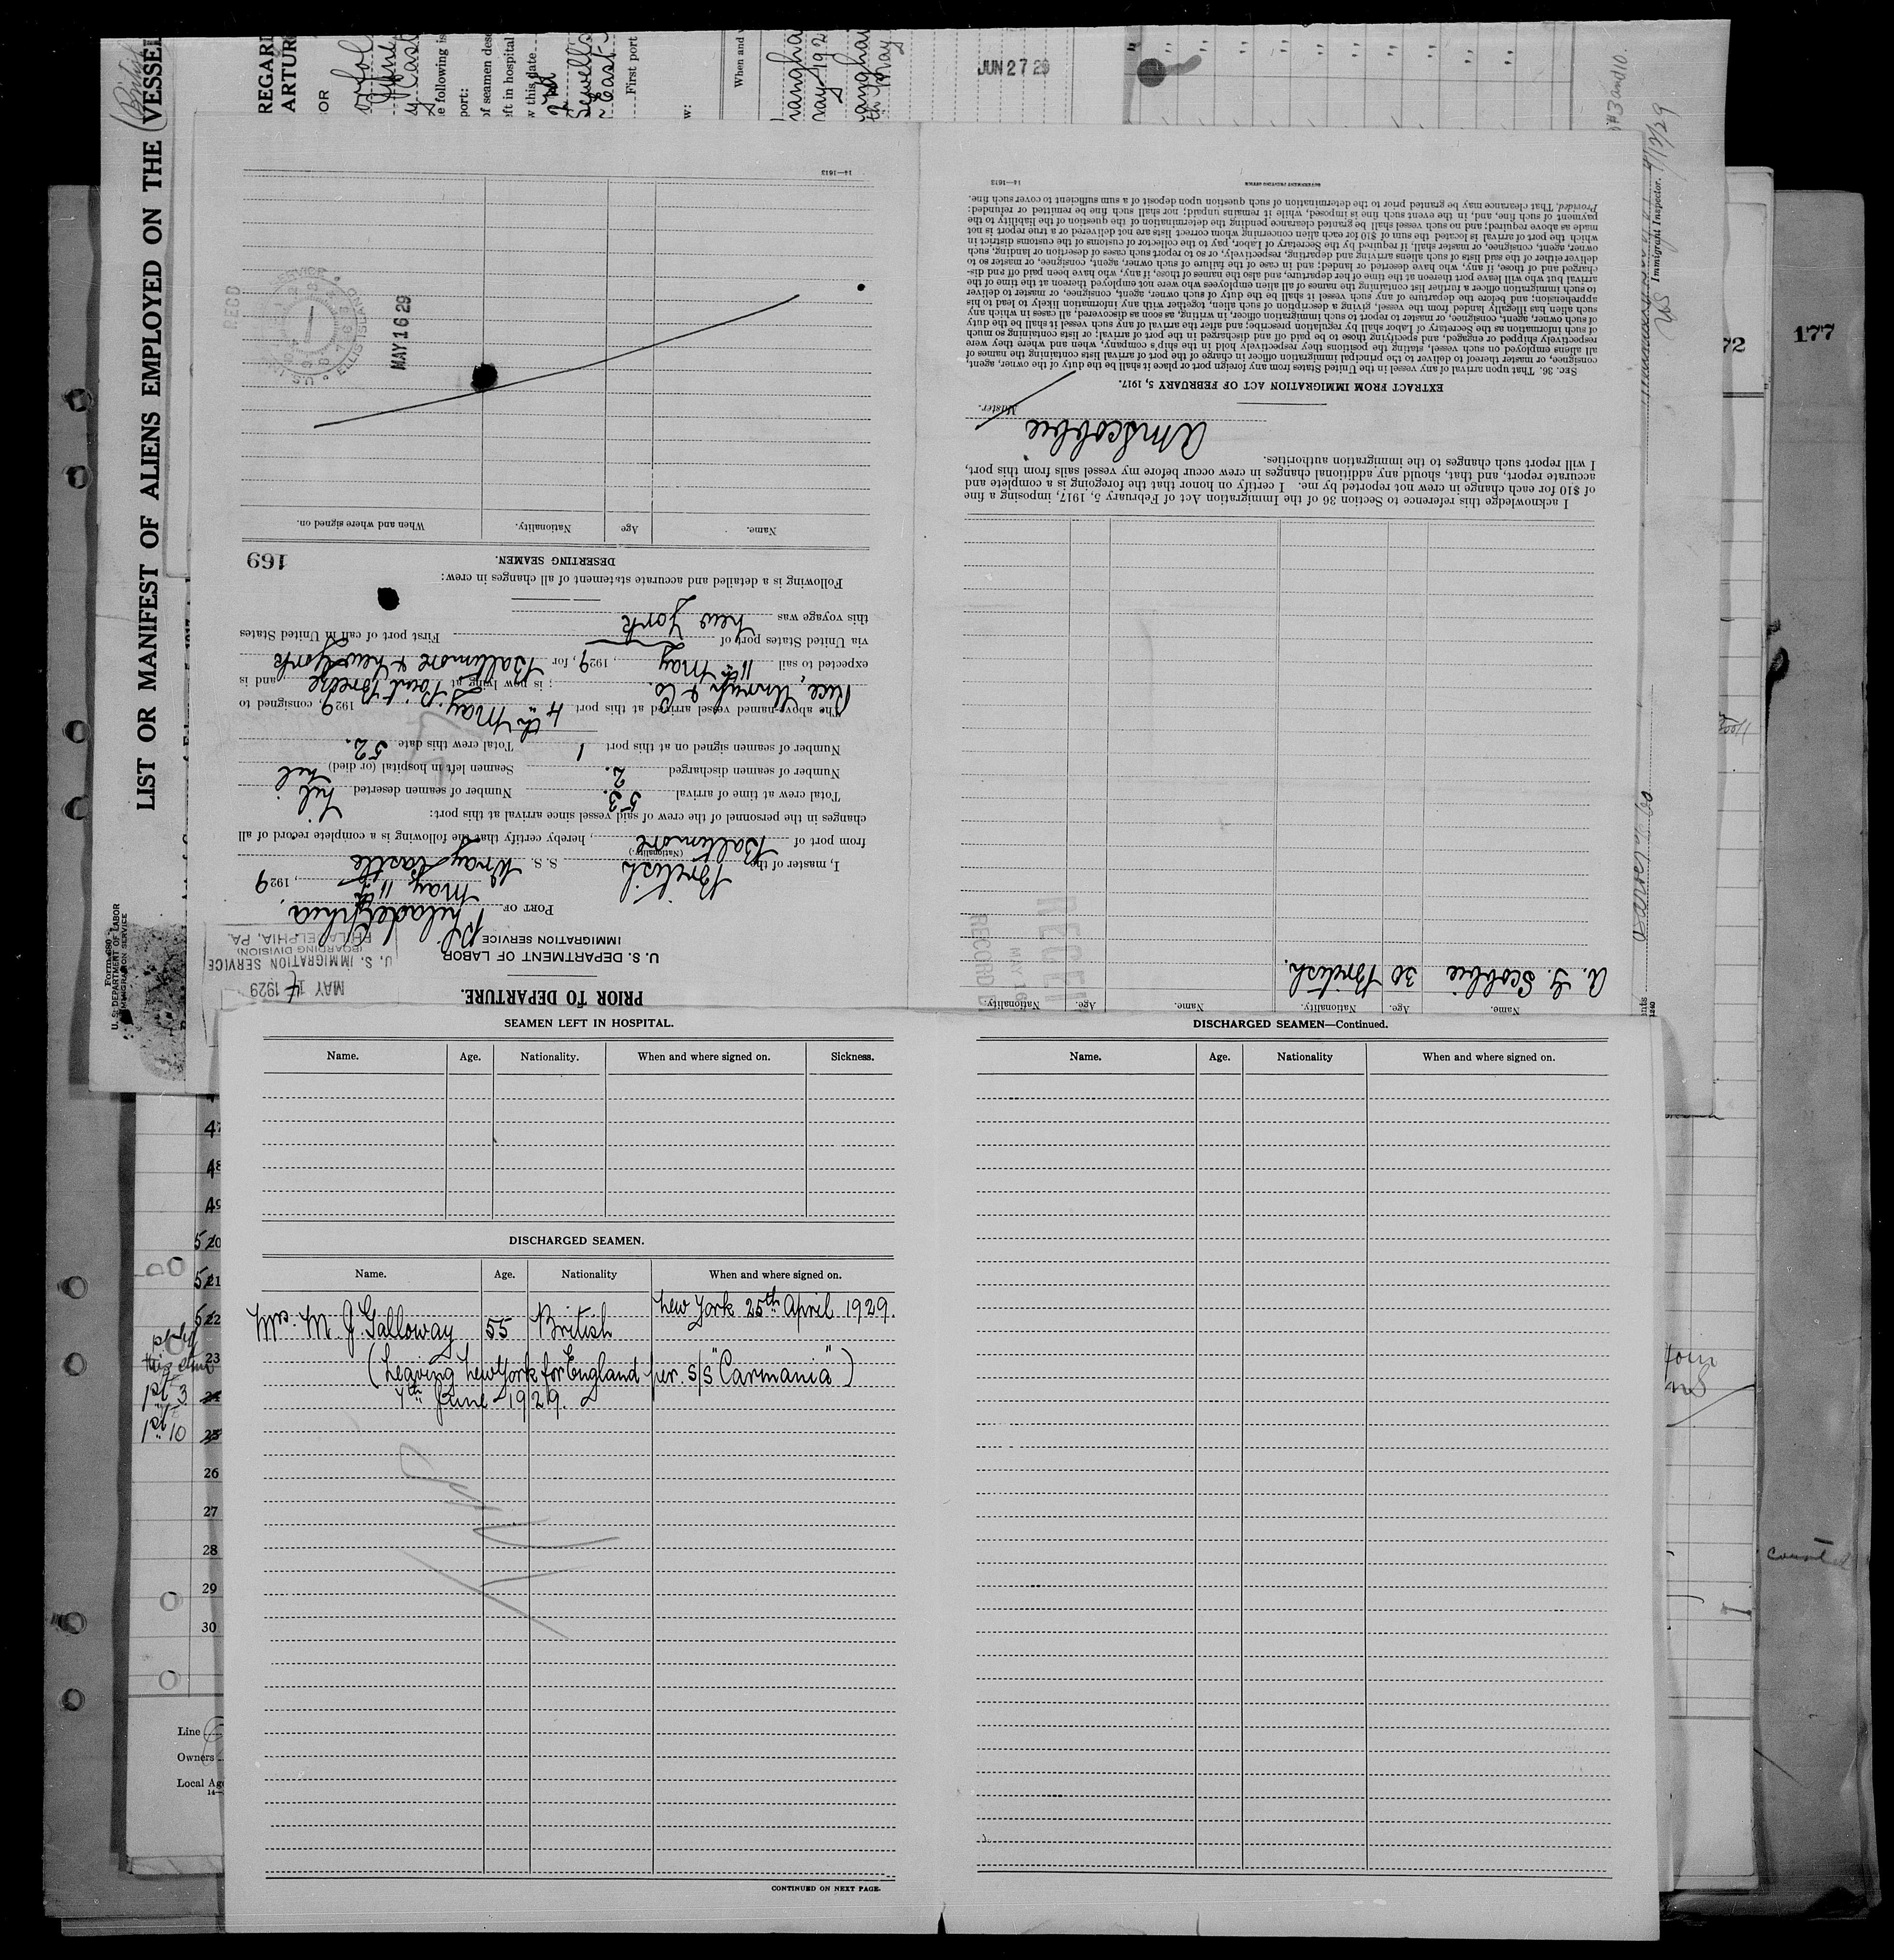 LIST OR MANIFEST OF ALIENS EMPLOYED ON THE VESSEL
(British
Form 680
U. S. DEPARTMENT OF LABOR
IMMIGRATION SERVICE
REGARD
ARTURE
e following is
port:
of seamen des
eft in hospital
w this date
2nd
Sewells
First port
When and w
JUN 27 29
#3 and 10.
Immigrant Inspector.
72
177
PRIOR TO DEPARTURE.
MAY 14 1929
U. S. IMMIGRATION SERVICE
(BOARDING DIVISION)
PHILADELPHIA, PA.
U. S. DEPARTMENT OF LABOR
IMMIGRATION SERVICE
PORT OF Philadelphia,
May 11th, 1929
I, master of the British S. S. Wray Castle
(Nationality.)
from port of Baltimore, hereby certify that the following is a complete record of all
changes in the personnel of the crew of said vessel since arrival at this port:
Total crew at time of arrival 53. Number of seamen deserted Nil
Number of seamen discharged 2. Seamen left in hospital (or died) Nil
Number of seamen signed on at this port 1 Total crew this date 52.
The above-named vessel arrived at this port 4th May, 1929, consigned to
Rice, Unruh & Co. ; is now lying at Point Breeze and is
expected to sail 11th May, 1929, for Baltimore & New York
via United States port of First port of call in United States
this voyage was New York
Following is a detailed and accurate statement of all changes in crew:
169
DESERTING SEAMEN.
Name. Age Nationality. When and where signed on.
MAY 16 29
REC'D
ELLIS ISLAND
14—1613
Name. Age. Nationality. Name. Age. Nationality.
A. G. Scobbie 30 British.
RECORD
MAY 16
I acknowledge this reference to Section 36 of the Immigration Act of February 5, 1917, imposing a fine
of $10 for each change in crew not reported by me. I certify on honor that the foregoing is a complete and
accurate report, and that, should any additional changes in crew occur before my vessel sails from this port,
I will report such changes to the immigration authorities.
AMScobbie
Master.
EXTRACT FROM IMMIGRATION ACT OF FEBRUARY 5, 1917.
SEC. 36. That upon arrival of any vessel in the United States from any foreign port or place it shall be the duty of the owner, agent,
consignee, or master thereof to deliver to the principal immigration officer in charge of the port of arrival lists containing the names of
all aliens employed on such vessel, stating the positions they respectively hold in the ship's company, when and where they were
respectively shipped or engaged, and specifying those to be paid off and discharged in the port of arrival; or lists containing so much
of such information as the Secretary of Labor shall by regulation prescribe; and after the arrival of any such vessel it shall be the duty
of such owner, agent, consignee, or master to report to such immigration officer, in writing, as soon as discovered, all cases in which any
such alien has illegally landed from the vessel, giving a description of such alien, together with any information likely to lead to his
apprehension; and before the departure of any such vessel it shall be the duty of such owner, agent, consignee, or master to deliver
to such immigration officer a further list containing the names of all alien employees who were not employed thereon at the time of the
arrival but who will leave port thereon at the time of her departure, and also the names of those, if any, who have been paid off and dis-
charged and of those, if any, who have deserted or landed; and in case of the failure of such owner, agent, consignee, or master to
deliver either of the said lists of such aliens arriving and departing, respectively, or so to report such cases of desertion or landing, such
owner, agent, consignee, or master shall, if required by the Secretary of Labor, pay to the collector of customs of the customs district in
which the port of arrival is located the sum of $10 for each alien concerning whom correct lists are not delivered or a true report is not
made as above required; and no such vessel shall be granted clearance pending the determination of the question of the liability to the
payment of such fine, and, in the event such fine is imposed, while it remains unpaid; nor shall such fine be remitted or refunded:
Provided, That clearance may be granted prior to the determination of such question upon deposit of a sum sufficient to cover such fine.
GOVERNMENT PRINTING OFFICE
14—1613
SEAMEN LEFT IN HOSPITAL.
Name. Age. Nationality. When and where signed on. Sickness.
DISCHARGED SEAMEN.
Name. Age. Nationality When and where signed on.
Mrs. M. J. Galloway 55 British New York 25th April 1929.
(Leaving New York for England per. s/s "Carmania")
7th June 1929.
CONTINUED ON NEXT PAGE.
DISCHARGED SEAMEN—Continued.
Name. Age. Nationality When and where signed on.
47
48
49
50
51
52
23
24
25
26
27
28
29
30
Line
Owners
Local Age